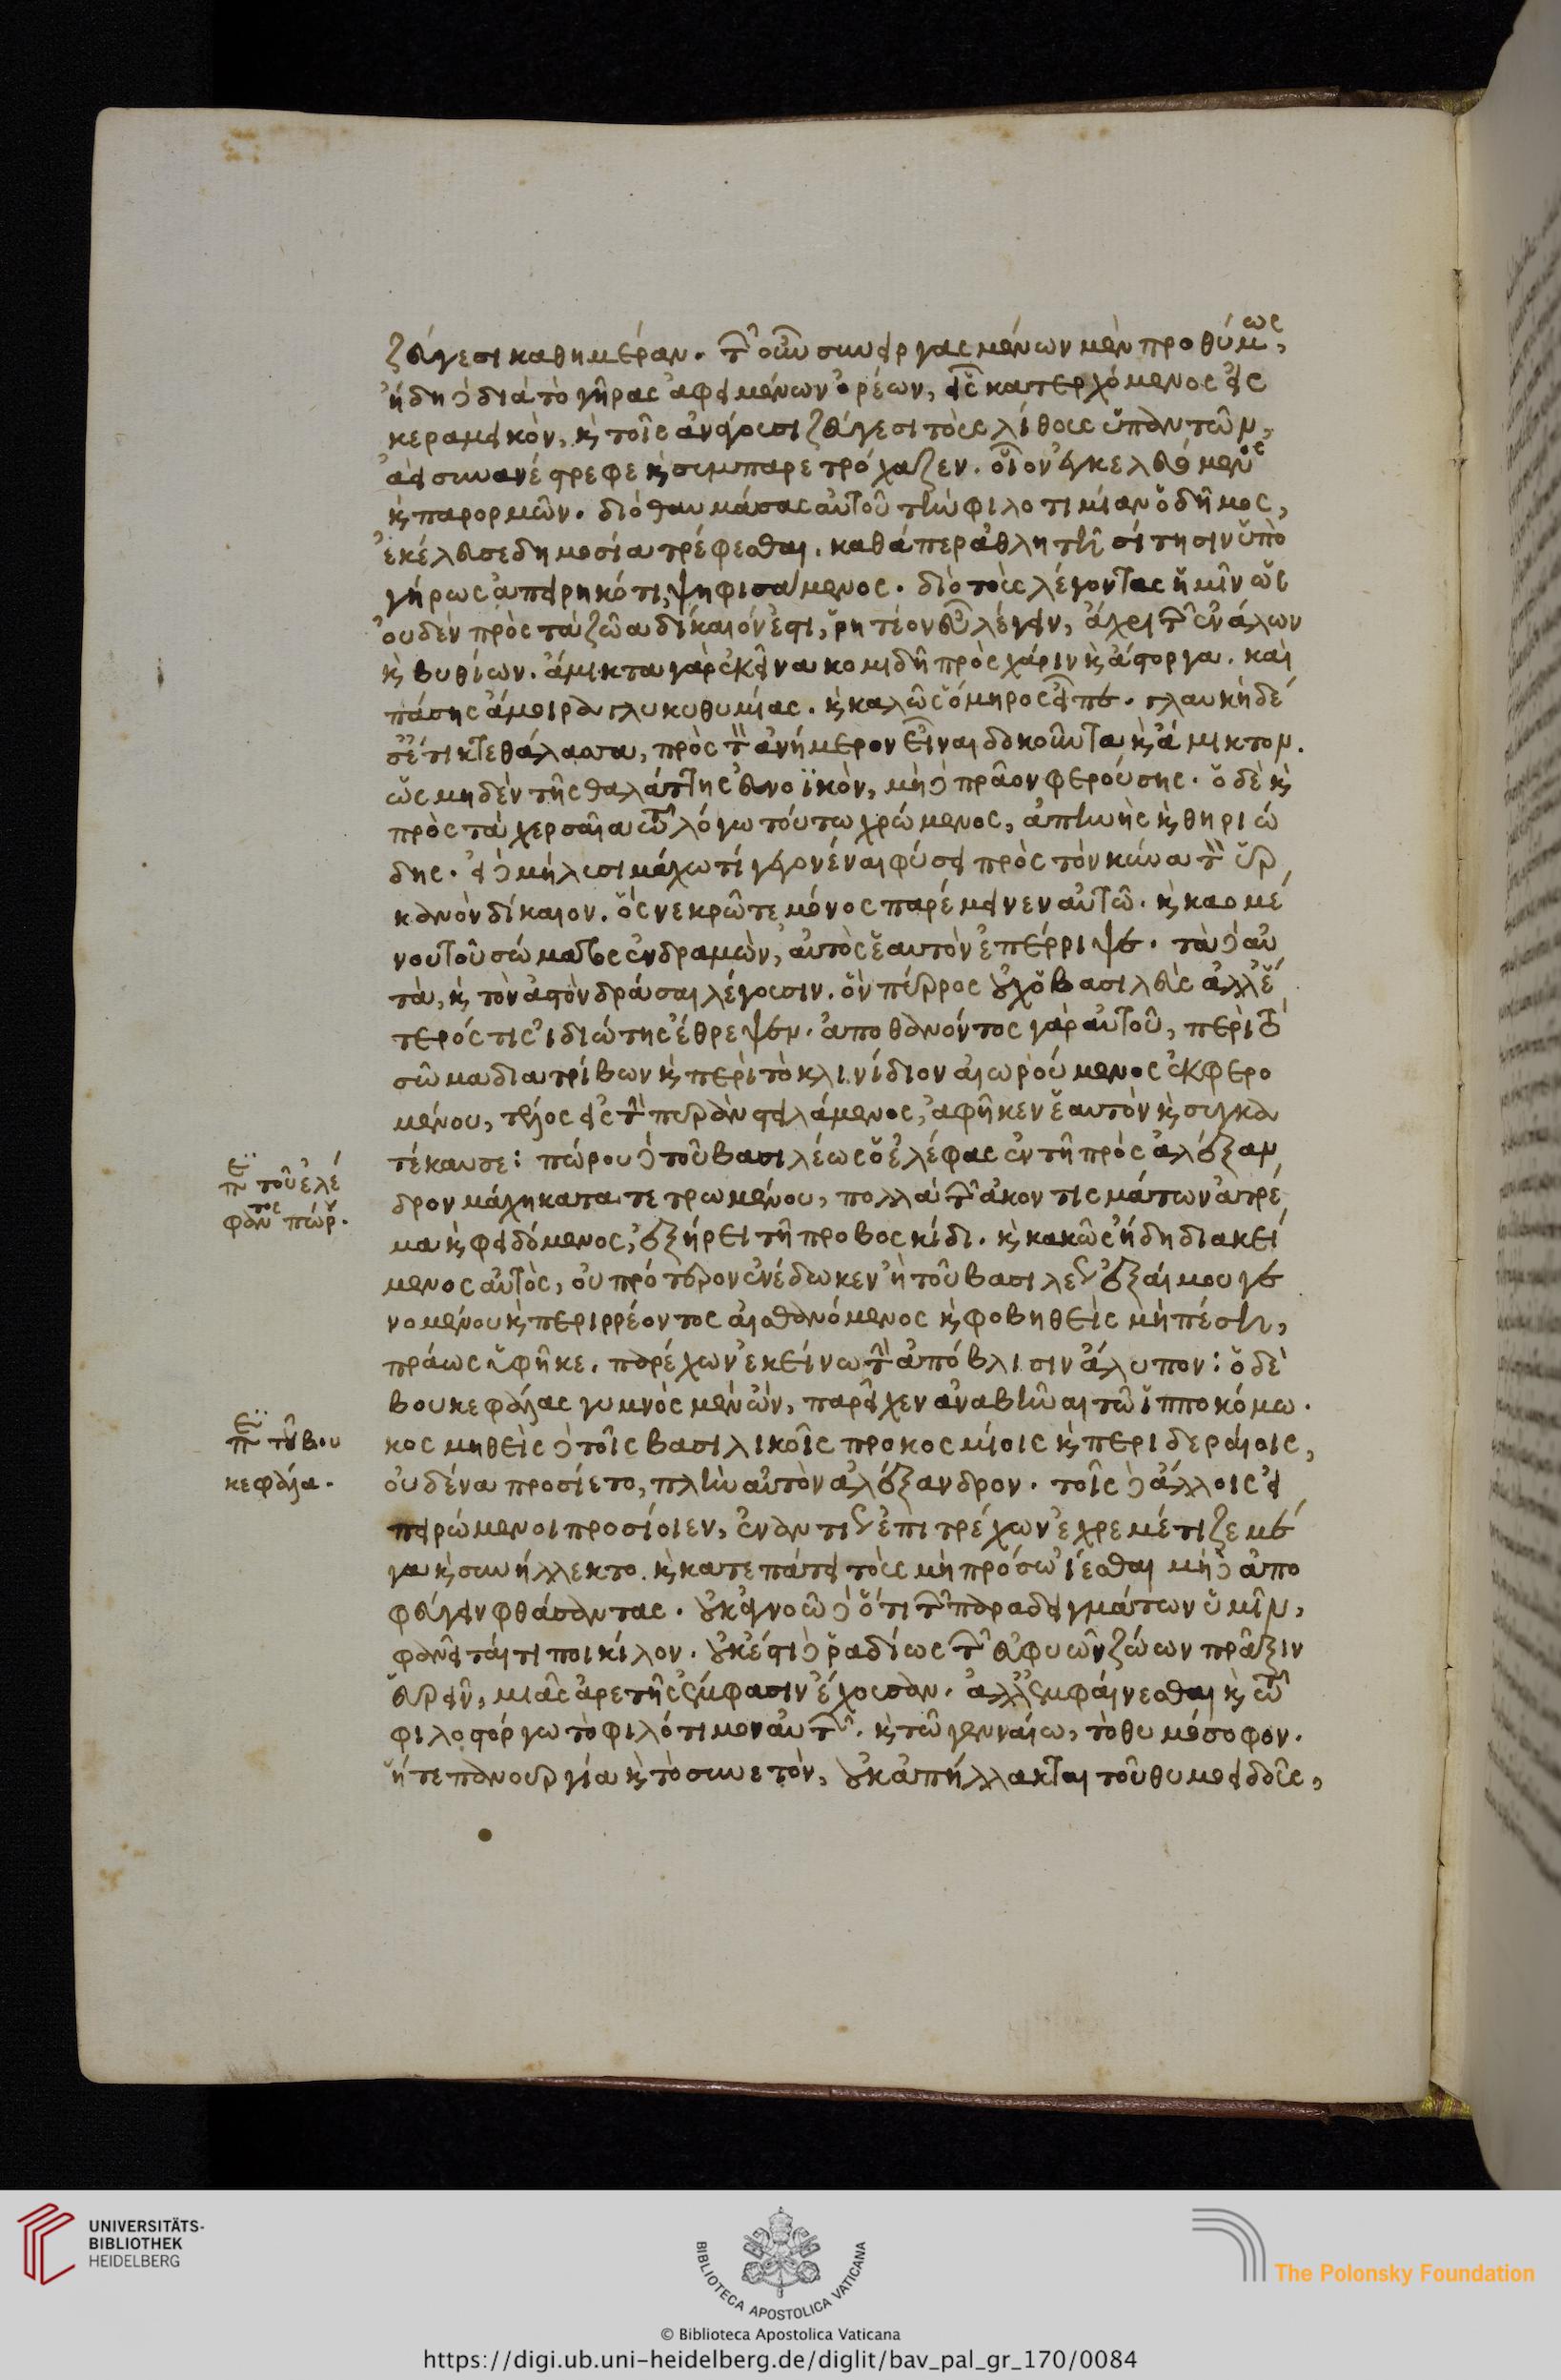 ζεύγεσι καθημέραν. τῶν οὖν συνεργασμένων μὲν προθύμως,
ἤδη δὲ διὰ τὸ γῆρας ἀφειμένων ὀρέων, εἷς κατερχόμενος εἰς
κεραμεικὸν, καὶ τοῖς ἀνάγουσι ζεύγεσι τοὺς λίθους ὑπαντῶν,
ἀεὶ συνανέστρεφε καὶ συμπαρετρόχαζεν. οἷον ἐγκελευόμενος
καὶ παρορμῶν. διὸ θαυμάσας αὐτοῦ τὴν φιλοτιμίαν ὁ δῆμος,
ἐκέλευσε δημοσίᾳ τρέφεσθαι. καθάπερ ἀθλητῆ σίτησιν ὑπὸ
γήρως ἀπειρηκότι, ψηφισάμενος. διὸ τοὺς λέγοντας ἡμῖν ὡς
οὐδὲν πρὸς τὰ ζῶα δίκαιόν ἐστι, ῥητέον εὖ λέγειν, ἄχρι τῶν ἐνάλων
καὶ βυθίων. ἄμικτα γὰρ ἐκεῖνα κομιδῆ πρὸς χάριν καὶ ἄστοργα. καὶ
πάσης ἄμοιρα γλυκυθυμίας. καὶ καλῶς ὅμηρος εἶπε. γλαυκὴ δέ
σε τίκτε θάλασσα, πρὸς τὸν ἀνήμερον εἶναι δοκοῦντα καὶ ἄμικτον.
ὡς μηδὲν τῆς θαλάττης εὐνοϊκὸν, μὴ δὲ πρᾶον φερούσης. ὁ δὲ καὶ
πρὸς τὰ χερσαῖα τῶ λόγω τούτω χρώμενος, ἀπηνὴς καὶ θηριώ
δης. εἰ δὲ μὴ λυσιμάχω τί γεγονέναι φύσει πρὸς τὸν κύνα τὸν ὑρ
κανὸν δίκαιον. ὃς νεκρῶ τε μόνος παρέμεινεν αὐτῶ. καὶ καομέ
νου τοῦ σώματος ἐνδραμὼν, αὐτὸς ἑαυτὸν ἐπέρριψε. τὰ δὲ αὐ
τὰ, καὶ τὸν ἀστὸν δράσαι λέγουσιν. ὃν πύρρος οὐχ ὁ βασιλεὺς ἀλλ' ἕ
τερός τις ἰδιώτης ἔθρεψεν. ἀποθανόντος γὰρ αὐτοῦ, περὶ τὸ
σῶμα διατρίβων καὶ περὶ τὸ κλινίδιον αἰωρούμενος ἐκφερο
μένου, τέλος εἰς τὴν πυρὰν στειλάμενος, ἀφῆκεν ἑαυτὸν καὶ συγκα
τέκαυσε: πώρου δὲ τοῦ βασιλέως ὁ ἐλέφας ἐν τῆ πρὸς ἀλέξαν
δρον μάχη κατατετρωμένου, πολλὰ τῶν ἀκοντισμάτων ἀτρέ
μα καὶ φειδόμενος, ἐξήρει τῆ προβοσκίδι. καὶ κακῶς ἤδη διακεί
μενος αὐτὸς, οὐ πρότερον ἐνέδωκεν ἢ τοῦ βασιλέως ἐξαίμου γε
νομένου καὶ περιρρέοντος αἰσθανόμενος καὶ φοβηθεὶς μὴ πέση,
πράως ὑφῆκε. παρέχων ἐκείνω τὴν ἀπόβλισιν ἄλυπον: ὁ δὲ
βουκεφάλας γυμνὸς μὲν ὢν, παρεῖχεν ἀναβῆναι τῶ ἱπποκόμω.
κοσμηθεὶς δὲ τοῖς βασιλικοῖς προκοσμίοις καὶ περιδεραίοις,
οὐδένα προσίετο, πλὴν αὐτὸν ἀλέξανδρον. τοῖς δὲ ἄλλοις εἰ
πειρώμενοι προσίοιεν, ἐναντίον ἐπιτρέχων ἐχρεμέτιζε μέ
γα καὶ συνήλλεκτο. καὶ κατεπάτει τοὺς μὴ πρόσω ἵεσθαι μὴ δὲ ἀπο
φεύγειν φθάσαντας. οὐκ ἀγνοῶ δὲ ὅτι τῶν παραδειγμάτων ὑμῖν,
φανεῖταί τι ποικίλον. οὐκ ἔστι δὲ ῥαδίως τῶν εὐφυῶν ζώων πρᾶξιν
εὑρεῖν, μιᾶς ἀρετῆς ἔμφασιν ἔχουσαν. ἀλλ' ἐμφαίνεσθαι καὶ τῶ
φιλοστόργω τὸ φιλότιμον αὐτῶν. καὶ τῶ γενναίω, τὸ θυμόσοφον.
ἥτε πανουργία καὶ τὸ συνετὸν, οὐκ ἀπήλλακται τοῦ θυμοειδοῦς,
περὶ τοῦ ἐλέ
φαντος πώρου.
περὶ τοῦ βου
κεφάλα.
UNIVERSITÄTS-
BIBLIOTHEK
HEIDELBERG
BIBLIOTECA APOSTOLICA VATICANA
The Polonsky Foundation
© Biblioteca Apostolica Vaticana
https://digi.ub.uni-heidelberg.de/diglit/bav_pal_gr_170/0084